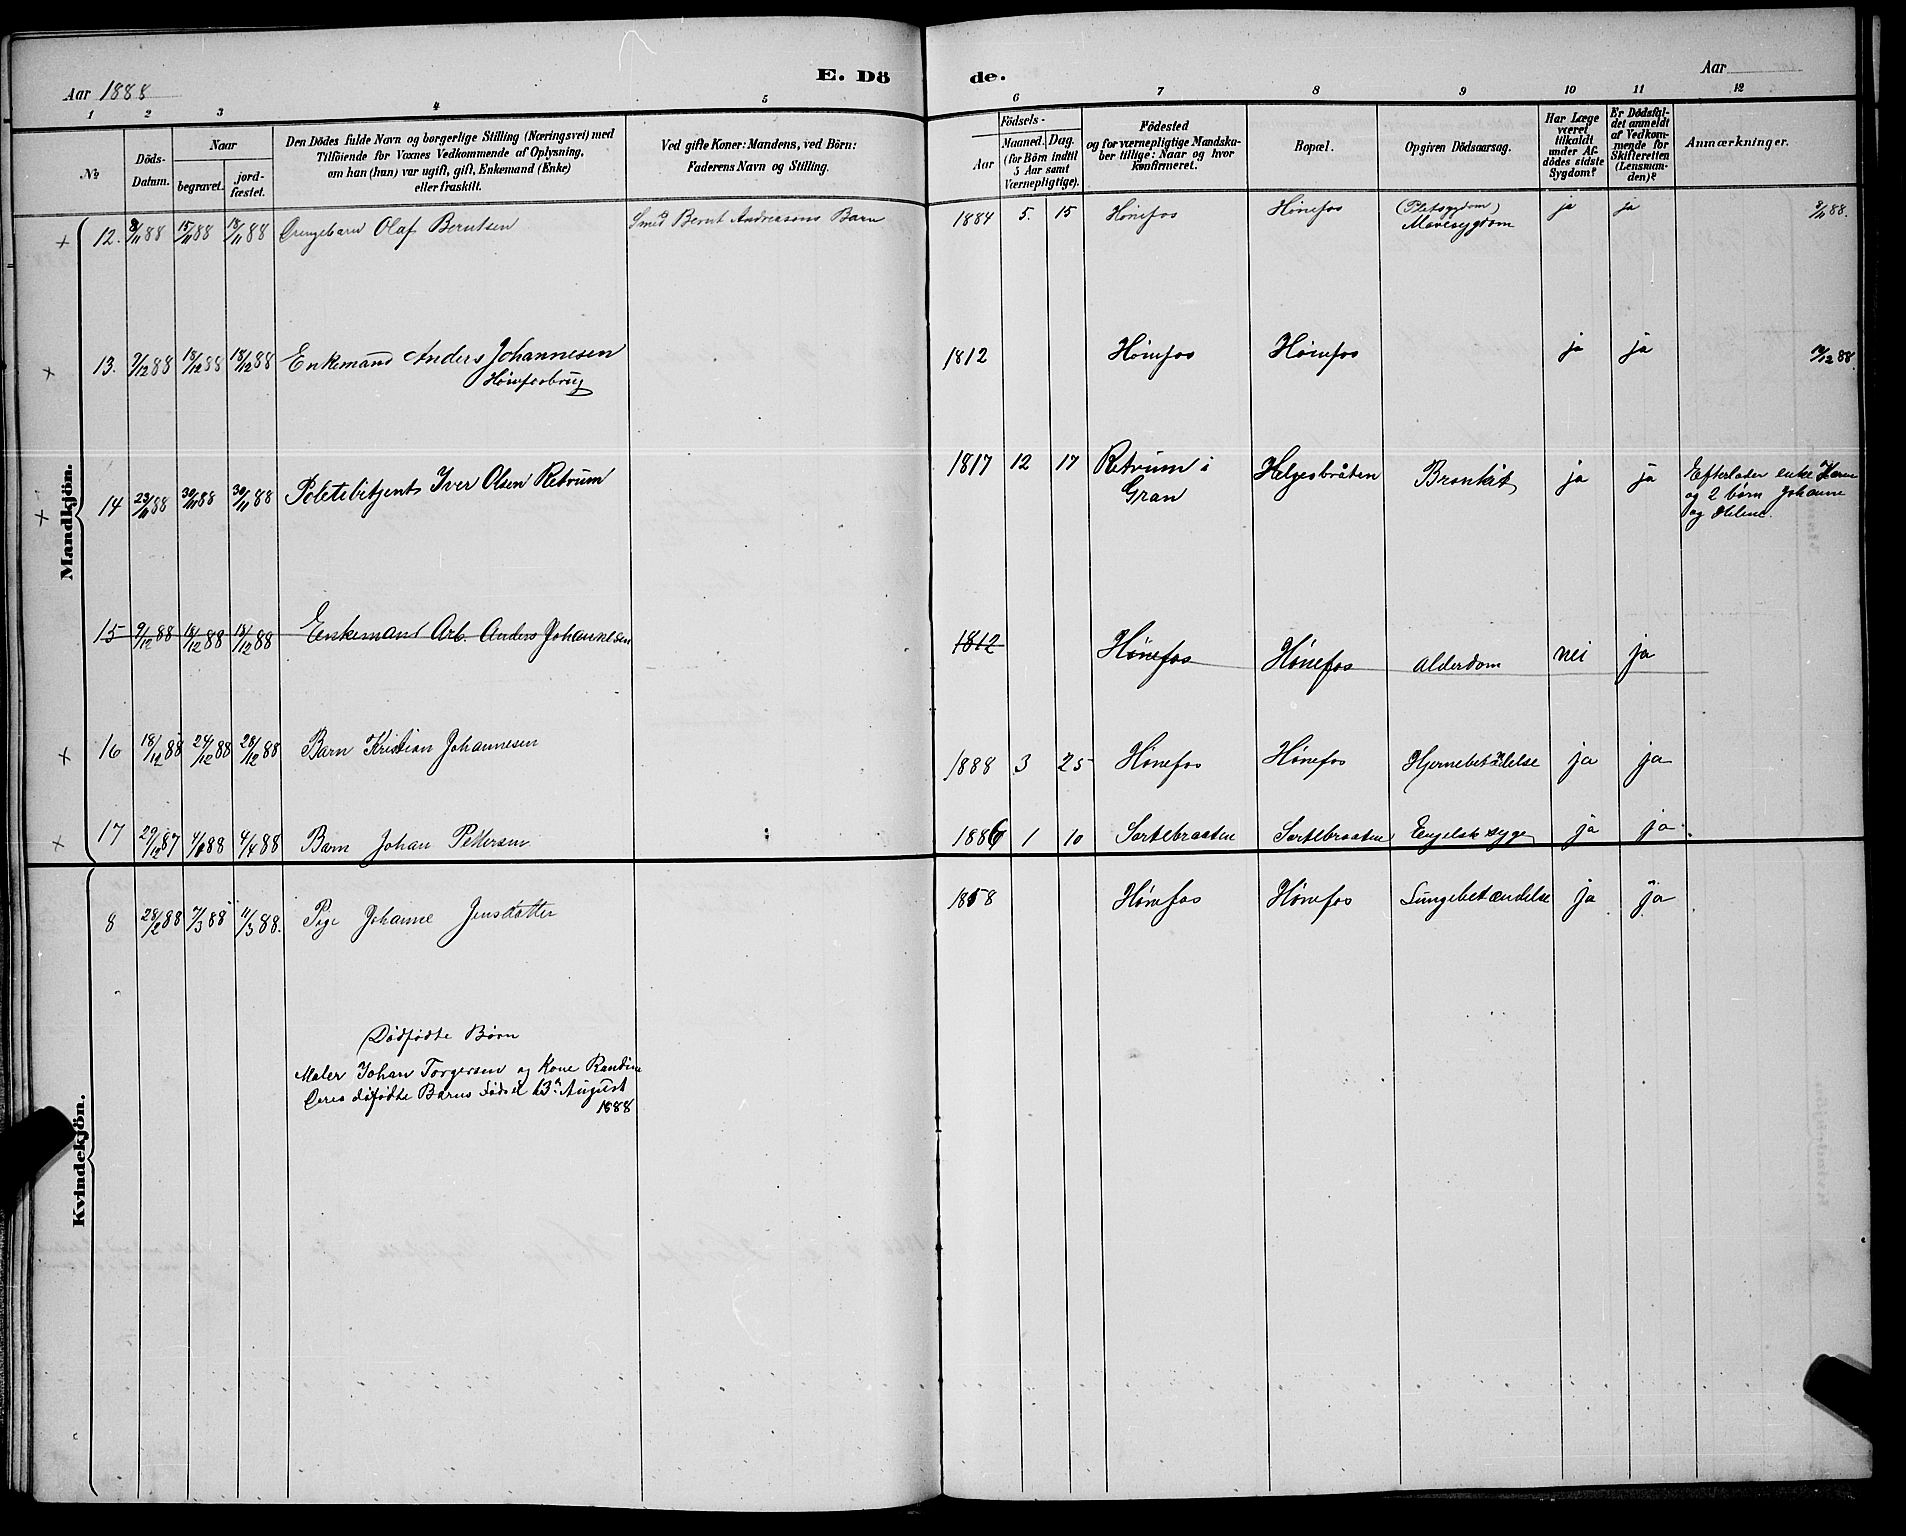 E. Dö
de.
Aar 1888
Aar
1 2 3 4 5 6 7 8 9 10 11 12
No
Döds-
Datum.
Naar
begravet.
jord-
fæstet.
Den Dödes fulde Navn og borgerlige Stilling (Næringsvei) med
Tilföiende for Voxnes Vedkommende af Oplysning,
om han (hun) var ugift, gift, Enkemand (Enke)
eller fraskilt.
Ved gifte Koner: Mandens, ved Börn:
Faderens Navn og Stilling.
Födsels-
Aar
Maaned. Dag.
(for Börn indtil
5 Aar samt
Værnepligtige).
Födested
og for værnepligtige Mandska-
ber tillige: Naar og hvor
konfirmeret.
Bopæl.
Opgiven Dödsaarsag.
Har Læge
været
tilkaldt
under Af-
dödes sidste
Sygdom?
Er Dödsfal-
det anmeldt
af Vedkom-
mende for
Skifteretten
(Lensman-
den)?
Anmærkninger.
Mandkjön.
12. 8/11 88 15/11 88 18/11 88 Drengebarn Olaf Berntsen Smed Bernt Andreasens Barn 1884 5. 15 Hönefos Hönefos Mavesygdom ja ja 9/11 88.
13. 9/12 88 18/12 88 18/12 88 Enkemand Anders Johannesen 1812 Hönefos Hönefos ja ja
Hönefosbrug
14 23/11 88 30/11 88 30/11 88 Politibetjent Iver Olsen Retrum 1817 12 17 Retrum i Helgesbråten Bronkit ja ja Efterlader enke Karen
Gran
og 2 börn Johanne
og Helene.
15 9/12 88 18/12 88 18/12 88 Enkemand Arb. Anders Johannesen 1812 Hönefos Hönefos Alderdom nei ja
16 18/12 88 24/12 88 28/12 88 Barn Kristian Johannesen 1888 3 25 Hønefos Hønefos Hjernebetændelse ja ja
17 29/12 87 4/1 88 4/4 88 Barn Johan Pettersen 1886 1 10 Sortebraaten Sortebraaten Engelsk syge ja ja
Kvindekjön.
8 28/2 88 7/3 88 11/3 88. Pige Johanne Jensdatter 1858 Hönefos Hönefos Lungebetændelse ja ja
Dödfödte Börn
Maler Johan Torgersen og Kone Randine
Deres döfödte Barns Födsel 13 August
1888